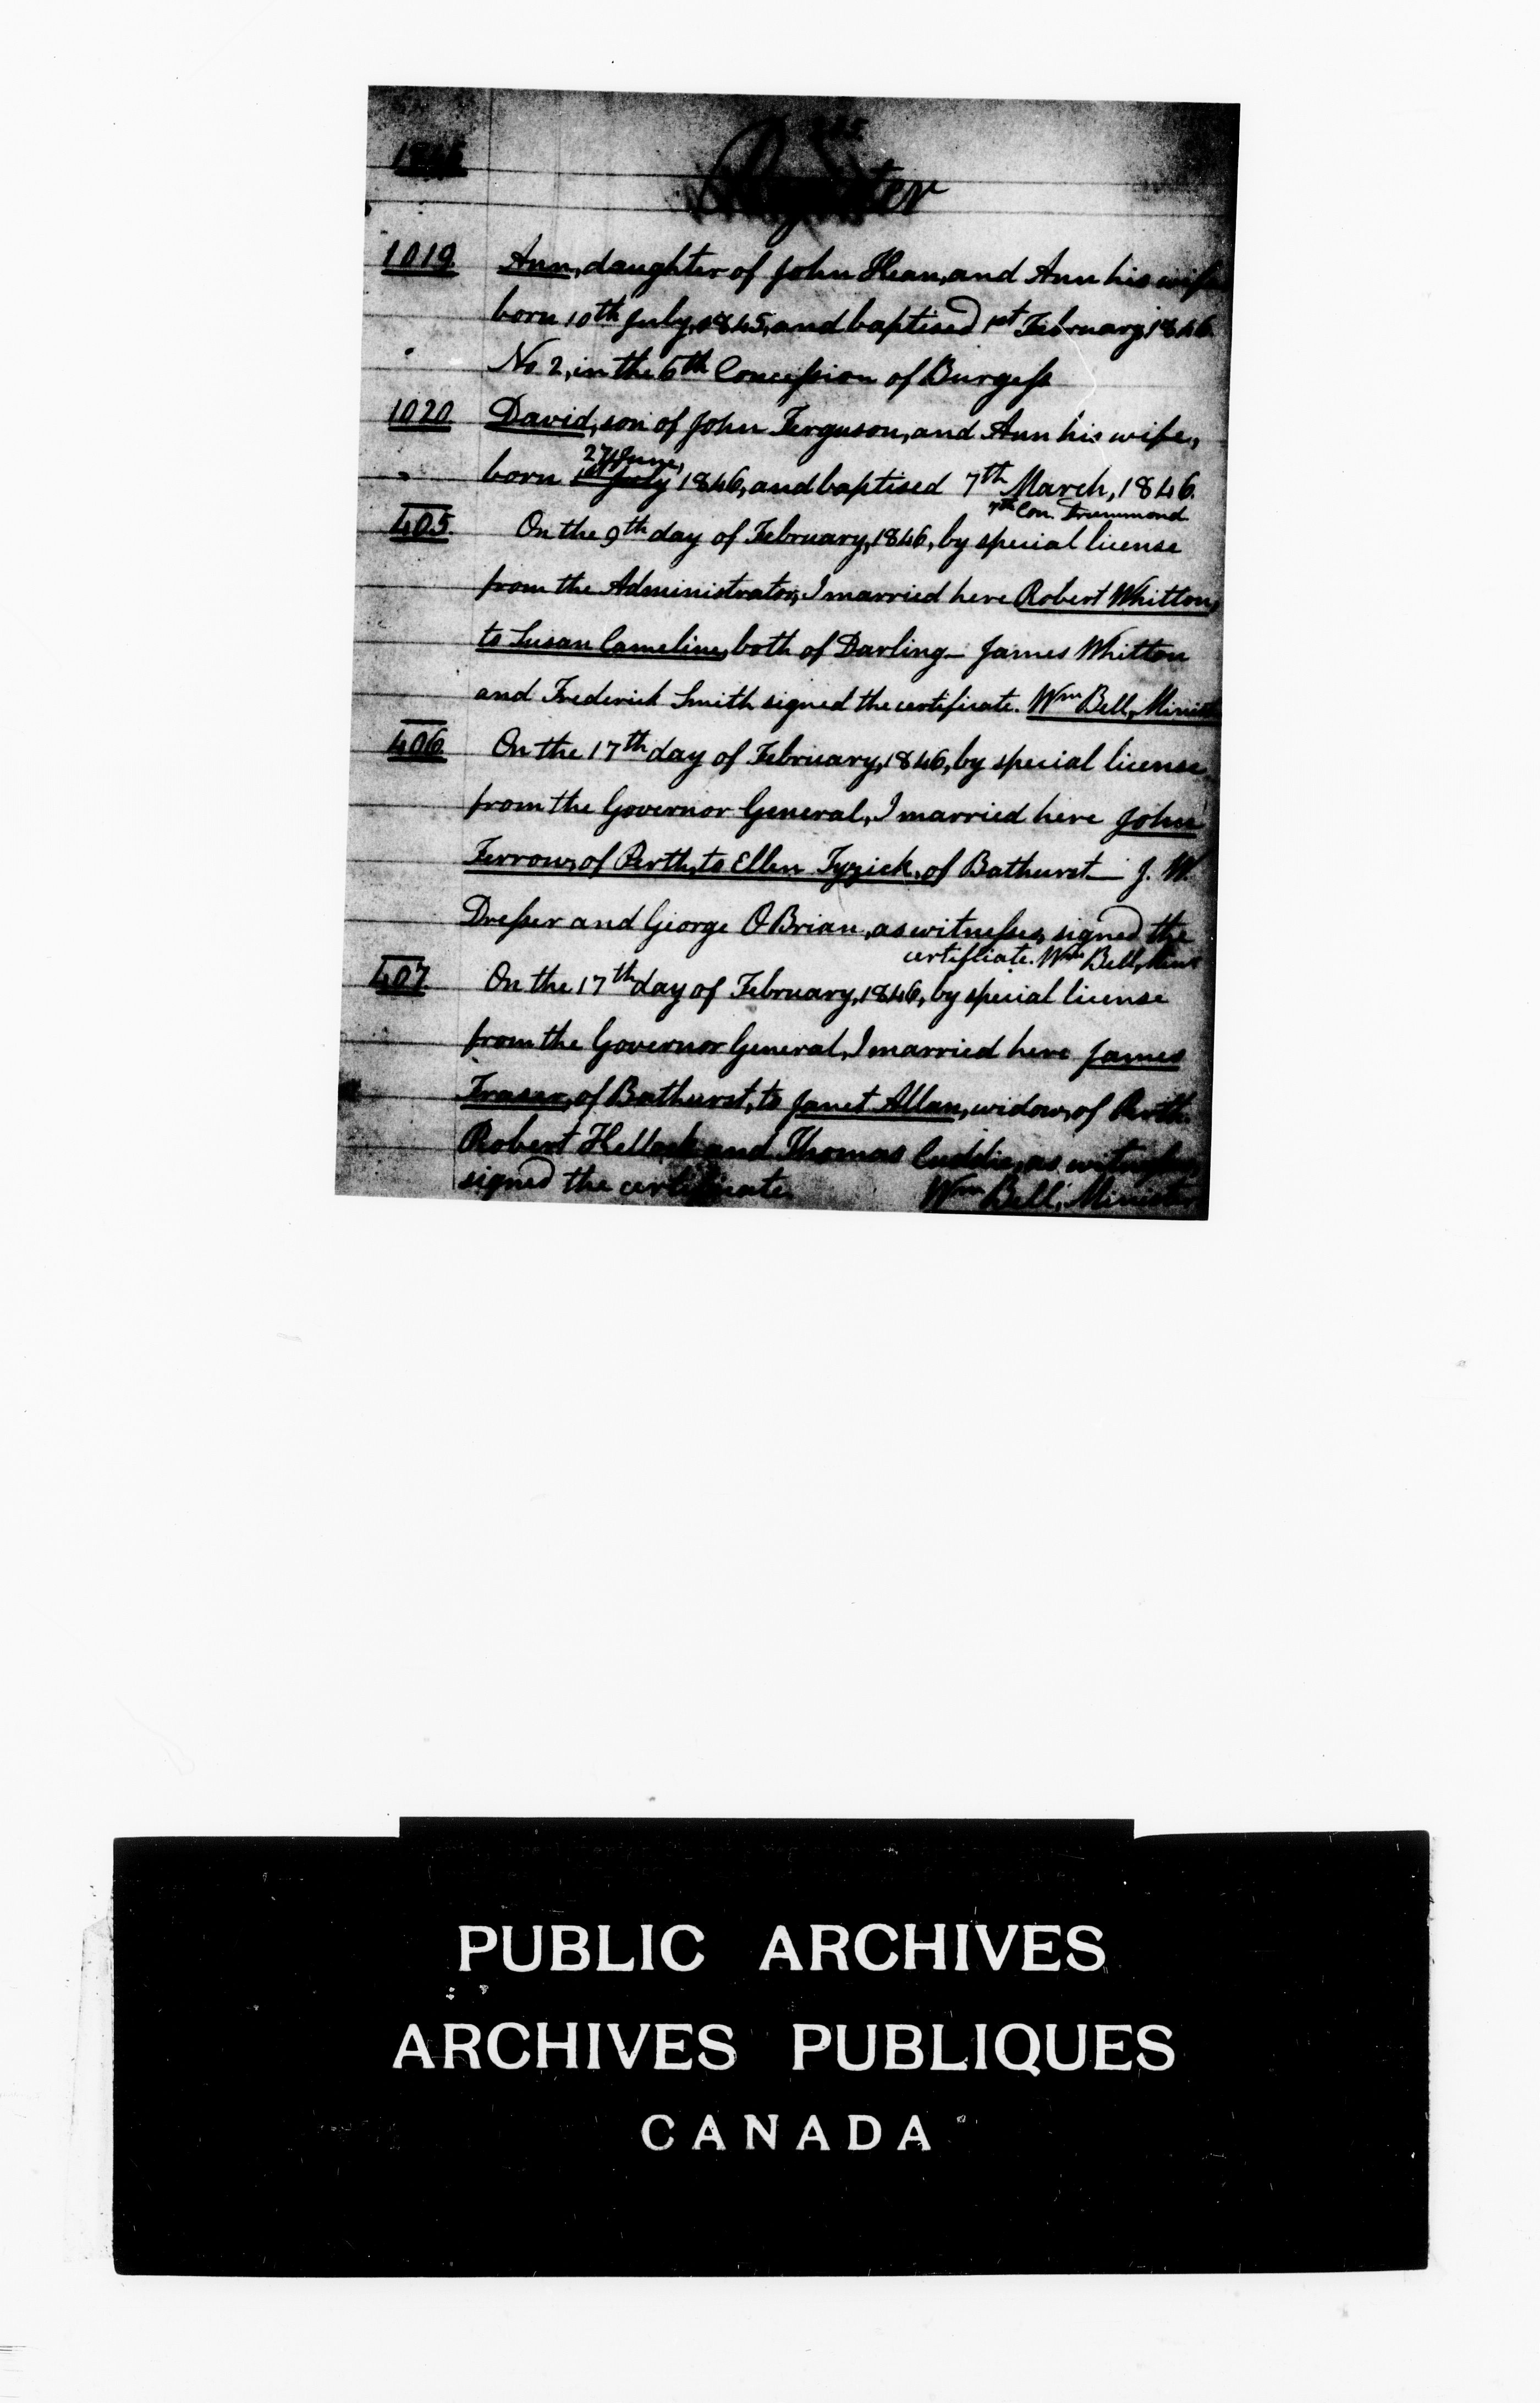 Register
1019. Ann, daughter of John Kean, and Ann his wife
born 10th July, 1845, and baptised 1st February, 1846.
No 2, in the 6th Concession of Burgess
1020. David, son of John Ferguson, and Ann his wife,
27 June,
born 1st July 1846, and baptised 7th March, 1846.
7th Con. Drummond
405. On the 9th day of February, 1846, by special license
from the Administrator, I married here Robert Whitton,
to Susan Cameline, both of Darling - James Whitton
and Frederick Smith signed the certificate. Wm Bell, Minister
406. On the 17th day of February, 1846, by special license
from the Governor General, I married here John
Ferrow, of Perth, to Ellen Tyzick, of Bathurst - J. W.
Dresser and George O Brian, as witnesses, signed the
certificate. Wm Bell, Minr
407. On the 17th day of February, 1846, by special license
from the Governor General, I married here James
Fraser, of Bathurst, to Janet Allan, widow, of Perth.
Robert Kellock and Thomas Cuddie, as witnesses,
signed the certificate. Wm Bell, Minister
PUBLIC ARCHIVES
ARCHIVES PUBLIQUES
CANADA